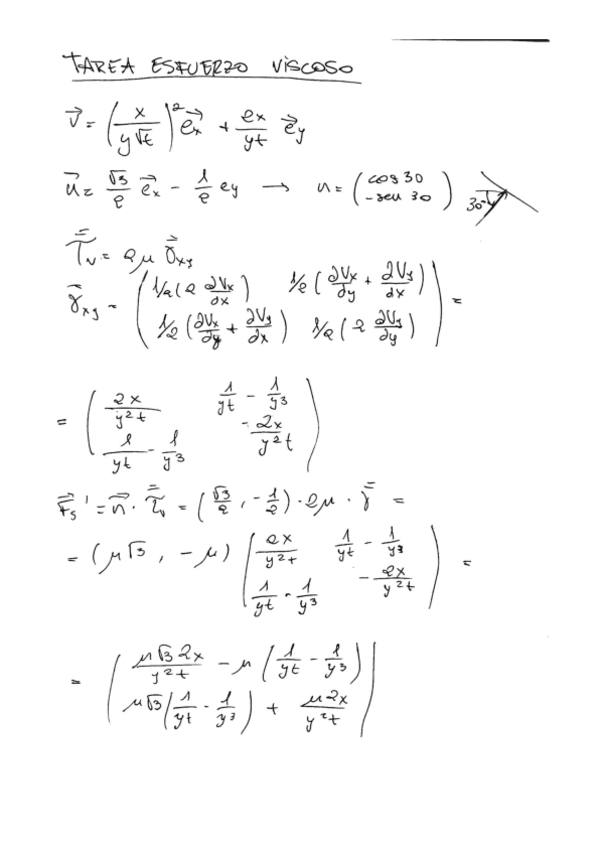 TAREA ESFUERZO VISCOSO
v⃗ = (x / y√t)² e⃗x + 2x/yt e⃗y
n⃗ = √3/2 e⃗x - 1/2 ey → n = (cos 30, -sen 30) 30°
τ̿v = 2μ γ̿xy
γ̿xy = ( 1/2(2 ∂Vx/∂x) 1/2(∂Vx/∂y + ∂Vy/∂x)
1/2(∂Vx/∂y + ∂Vy/∂x) 1/2(2 ∂Vy/∂y) ) =
= ( 2x/y²t 1/yt - 1/y³
1/yt - 1/y³ -2x/y²t )
F⃗s' = n⃗ · τ̿v = (√3/2, -1/2) · 2μ · γ̿ =
= (μ√3, -μ) ( 2x/y²t 1/yt - 1/y³
1/yt - 1/y³ -2x/y²t ) =
= ( μ√3 2x/y²t - μ(1/yt - 1/y³)
μ√3(1/yt - 1/y³) + μ2x/y²t )